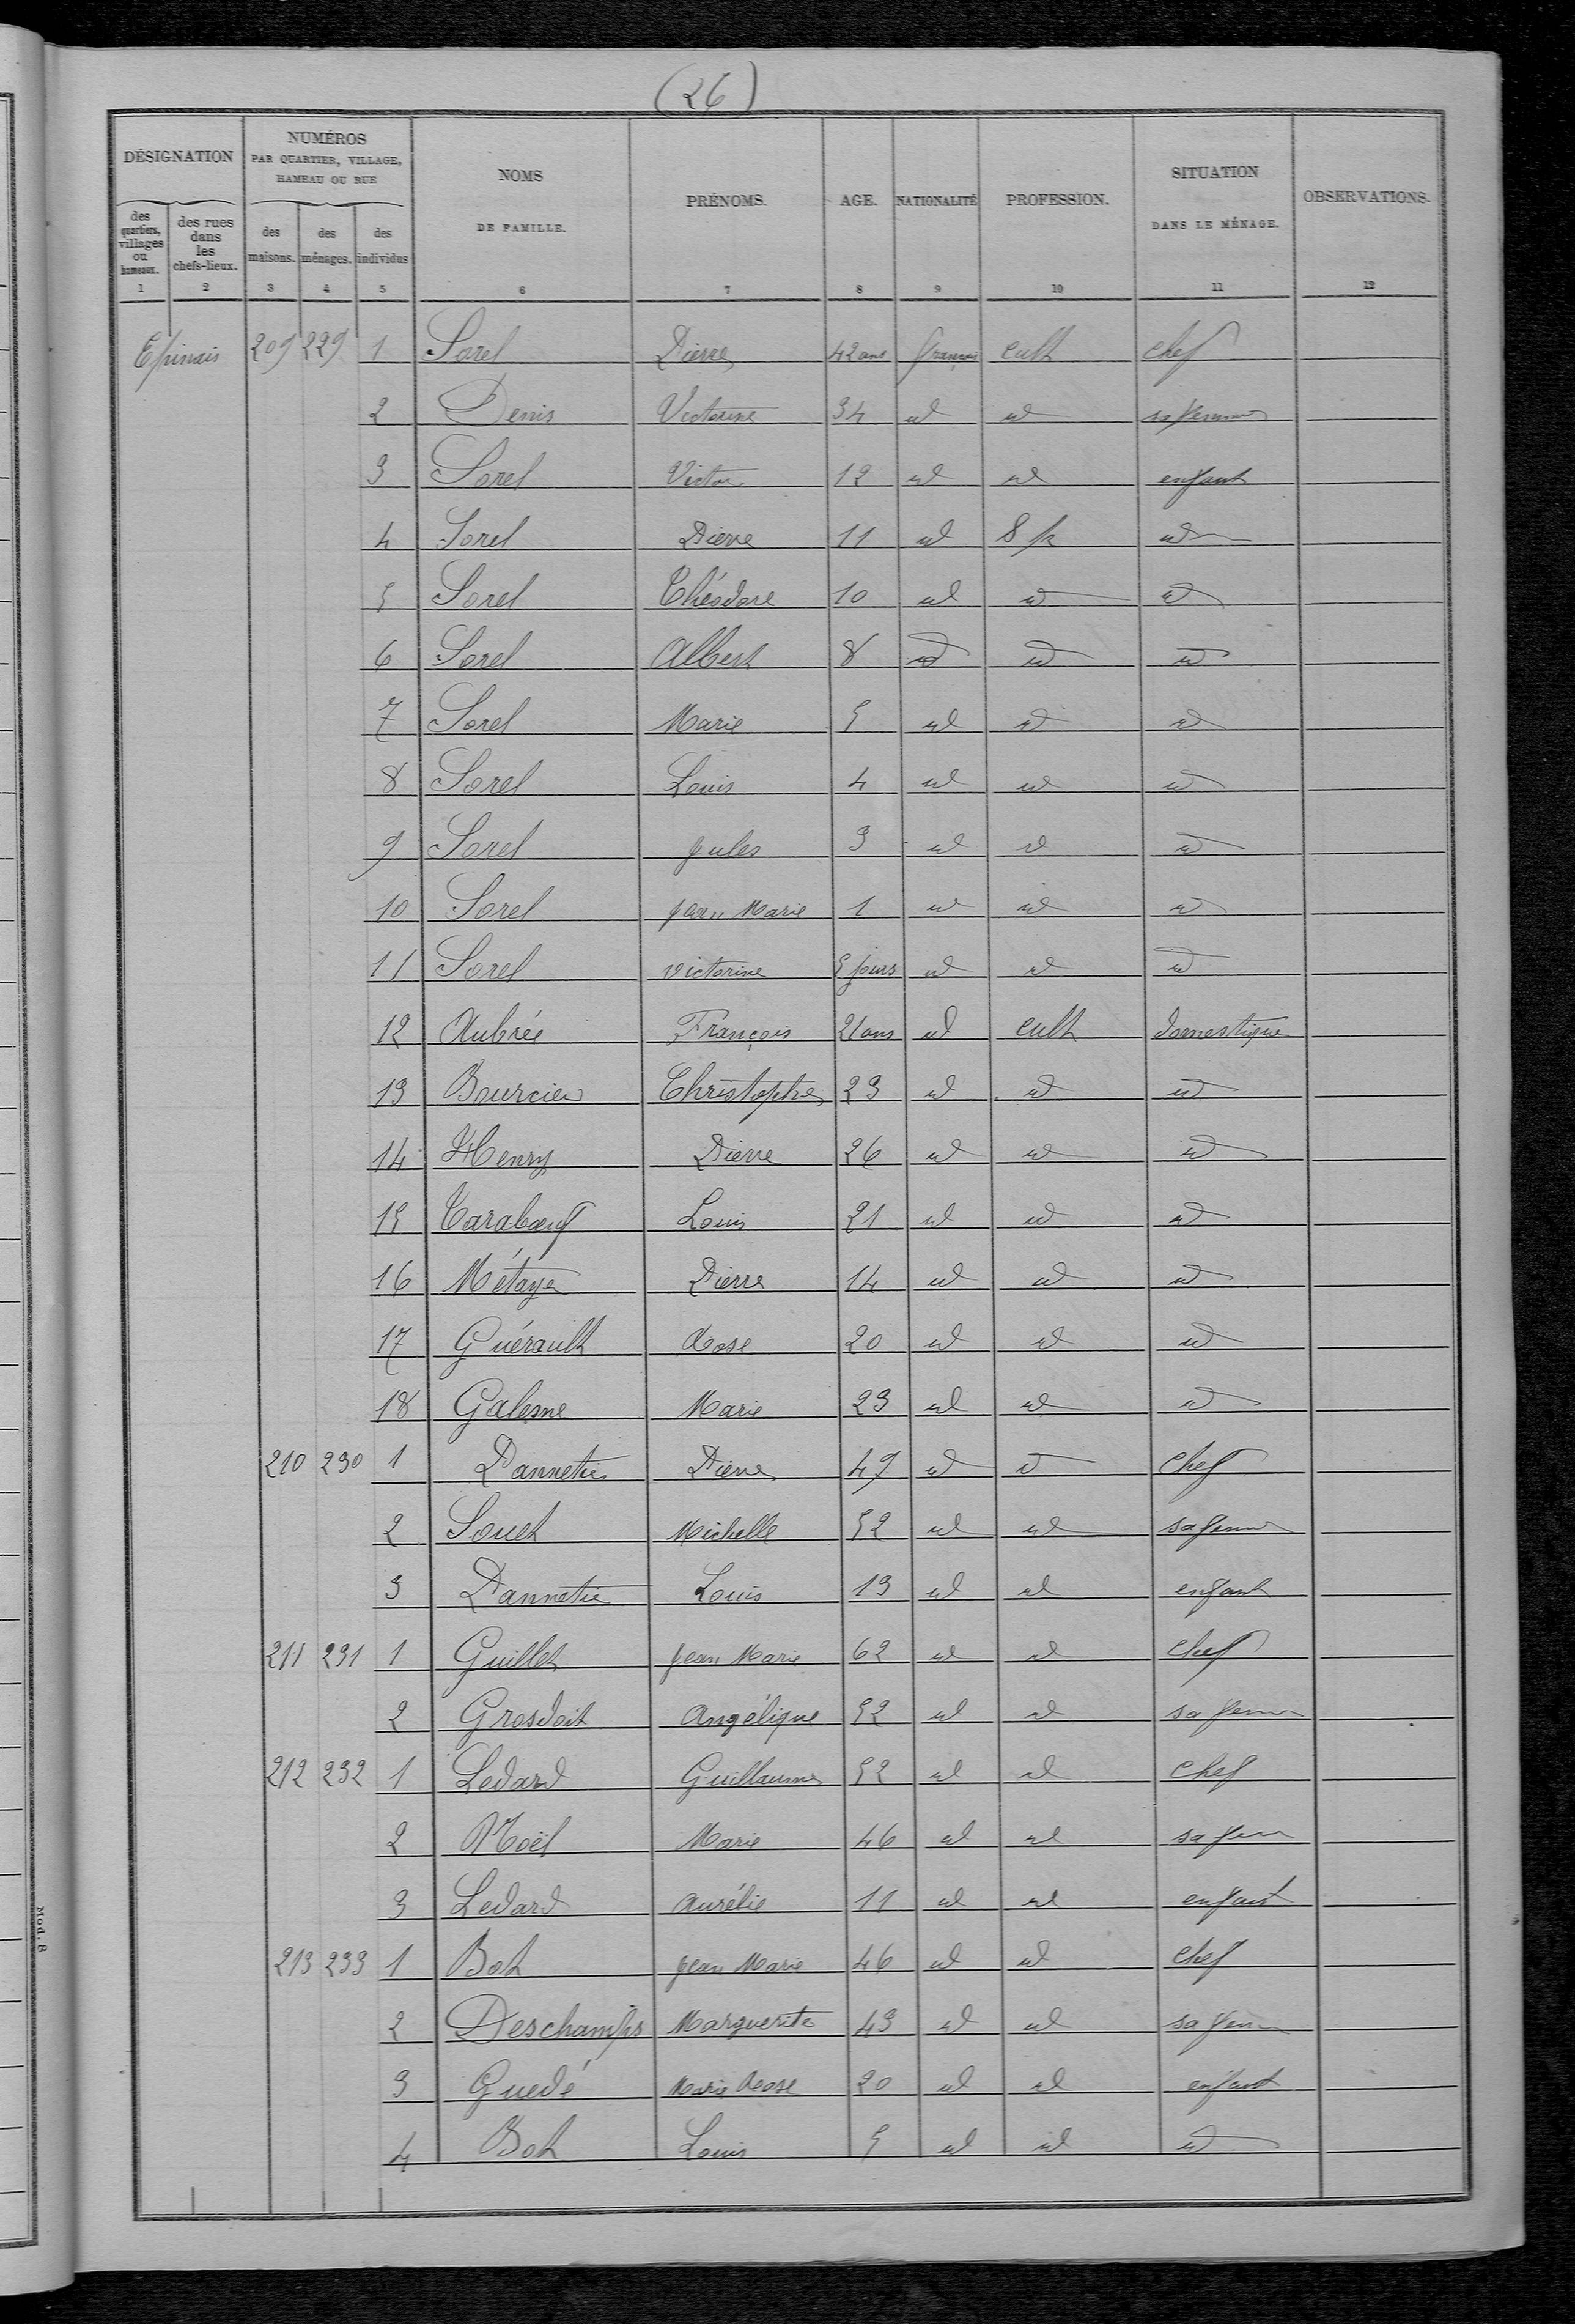 (26)
DÉSIGNATION
des quartiers, villages ou hameaux.
des rues dans les chefs-lieux.
NUMÉROS
PAR QUARTIER, VILLAGE,
HAMEAU OU RUE
des maisons.
des ménages.
des individus
NOMS
DE FAMILLE.
PRÉNOMS.
AGE.
NATIONALITÉ
PROFESSION.
SITUATION
DANS LE MÉNAGE.
OBSERVATIONS.
1 2 3 4 5 6 7 8 9 10 11 12
Epinais 209 229 1 Sorel Pierre 42 ans français cult chef
2 Denis Victorine 34 id id sa femme
3 Sorel Victor 12 id id enfant
4 Sorel Pierre 11 id S p id
5 Sorel Théodore 10 id id id
6 Sorel Albert 8 id id id
7 Sorel Marie 5 id id id
8 Sorel Louis 4 id id id
9 Sorel Jules 3 id id id
10 Sorel Jean Marie 1 id id id
11 Sorel victorine 5 jours id id id
12 Aubrée François 21 ans id cult domestique
13 Bourcier Christophe 23 id id id
14 Henry Pierre 26 id id id
15 Taraboeuf Louis 21 id id id
16 Métayer Pierre 14 id id id
17 Guérault Rose 20 id id id
18 Galesne Marie 23 id id id
210 230 1 Pannetier Pierre 49 id id chef
2 Souet Michelle 52 id id sa femme
3 Pannetier Louis 13 id id enfant
211 231 1 Guillet Jean Marie 62 id id chef
2 Grosdoit Angélique 52 id id sa femme
212 232 1 Ledard Guillaume 52 id id chef
2 Noël Marie 46 id id sa fem
3 Ledard Aurélie 11 id id enfant
213 233 1 Bot Jean Marie 46 id id chef
2 Deschamps Marguerite 43 id id sa femme
3 Guedé Marie Rose 20 id id enfant
4 Bot Louis 5 id id id
Mod. B